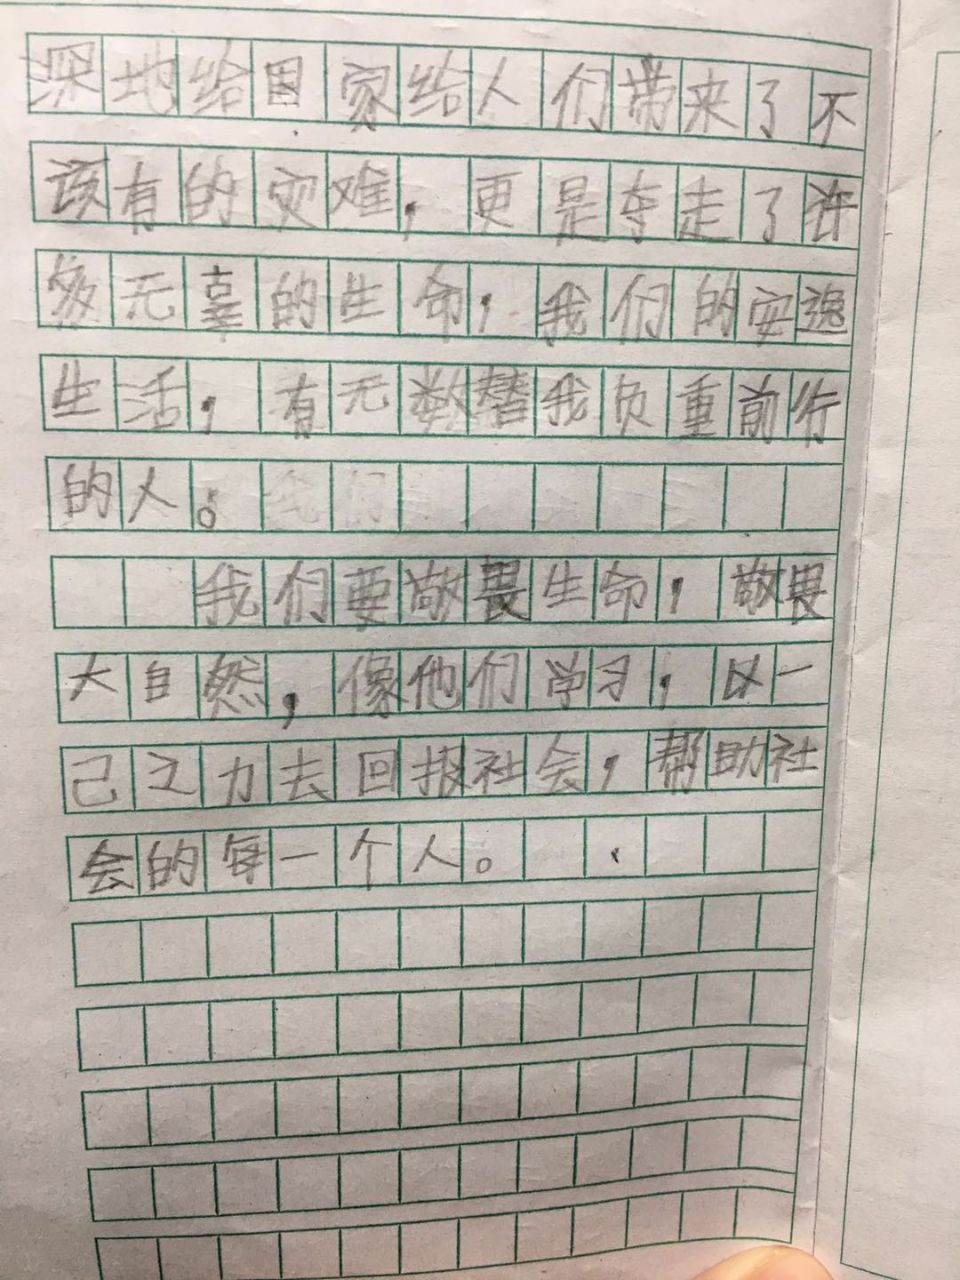 深地给国家给人们带来了不
该有的灾难，更是夺走了许
多无辜的生命，我们的安逸
生活，有无数替我负重前行
的人。我们
我们要敬畏生命，敬畏
大自然，像他们学习，以一
己之力去回报社会，帮助社
会的每一个人。